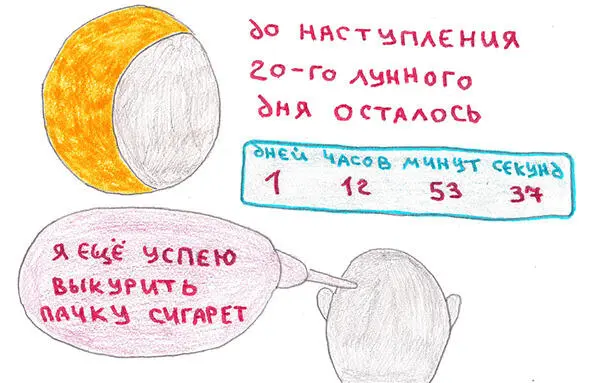 до наступления
20-го лунного
дня осталось
дней часов минут секунд
1 12 53 37
я ещё успею
выкурить
пачку сигарет